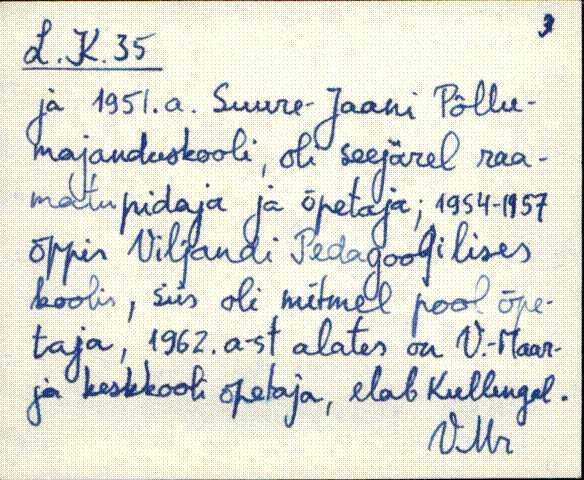 3
L.K.35
ja 1951.a. Suure-Jaani Põllu-
majanduskooli, oli seejärel raa-
matupidaja ja õpetaja; 1954-1957
õppis Viljandi Pedagoogilises
koolis, siis oli mitmel pool õpe-
taja, 1962.a-st alates on V.-Maar-
ja keskkooli õpetaja, elab Kullengal.